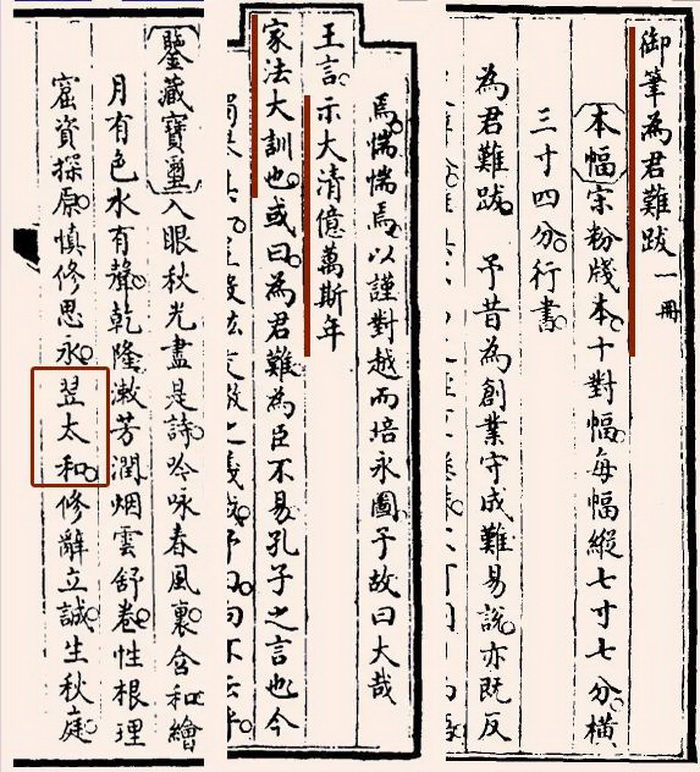 御筆為君難跋一冊
本幅宋粉牋本。十對幅。每幅縱七寸七分。橫
三寸四分。行書。
為君難跋。予昔為創業守成難易說。亦既反
焉。惴惴焉。以謹對越而培永圖。予故曰大哉
王言。示大清億萬斯年
家法大訓也。或曰。為君難為臣不易。孔子之言也。今
鑒藏寶璽入眼秋光盡是詩。吟咏春風裏。含和。繪
月有色水有聲。乾隆。漱芳潤。烟雲舒卷。性根理
窟資探原。慎修思永。翌太和。修辭立誠。生秋庭。